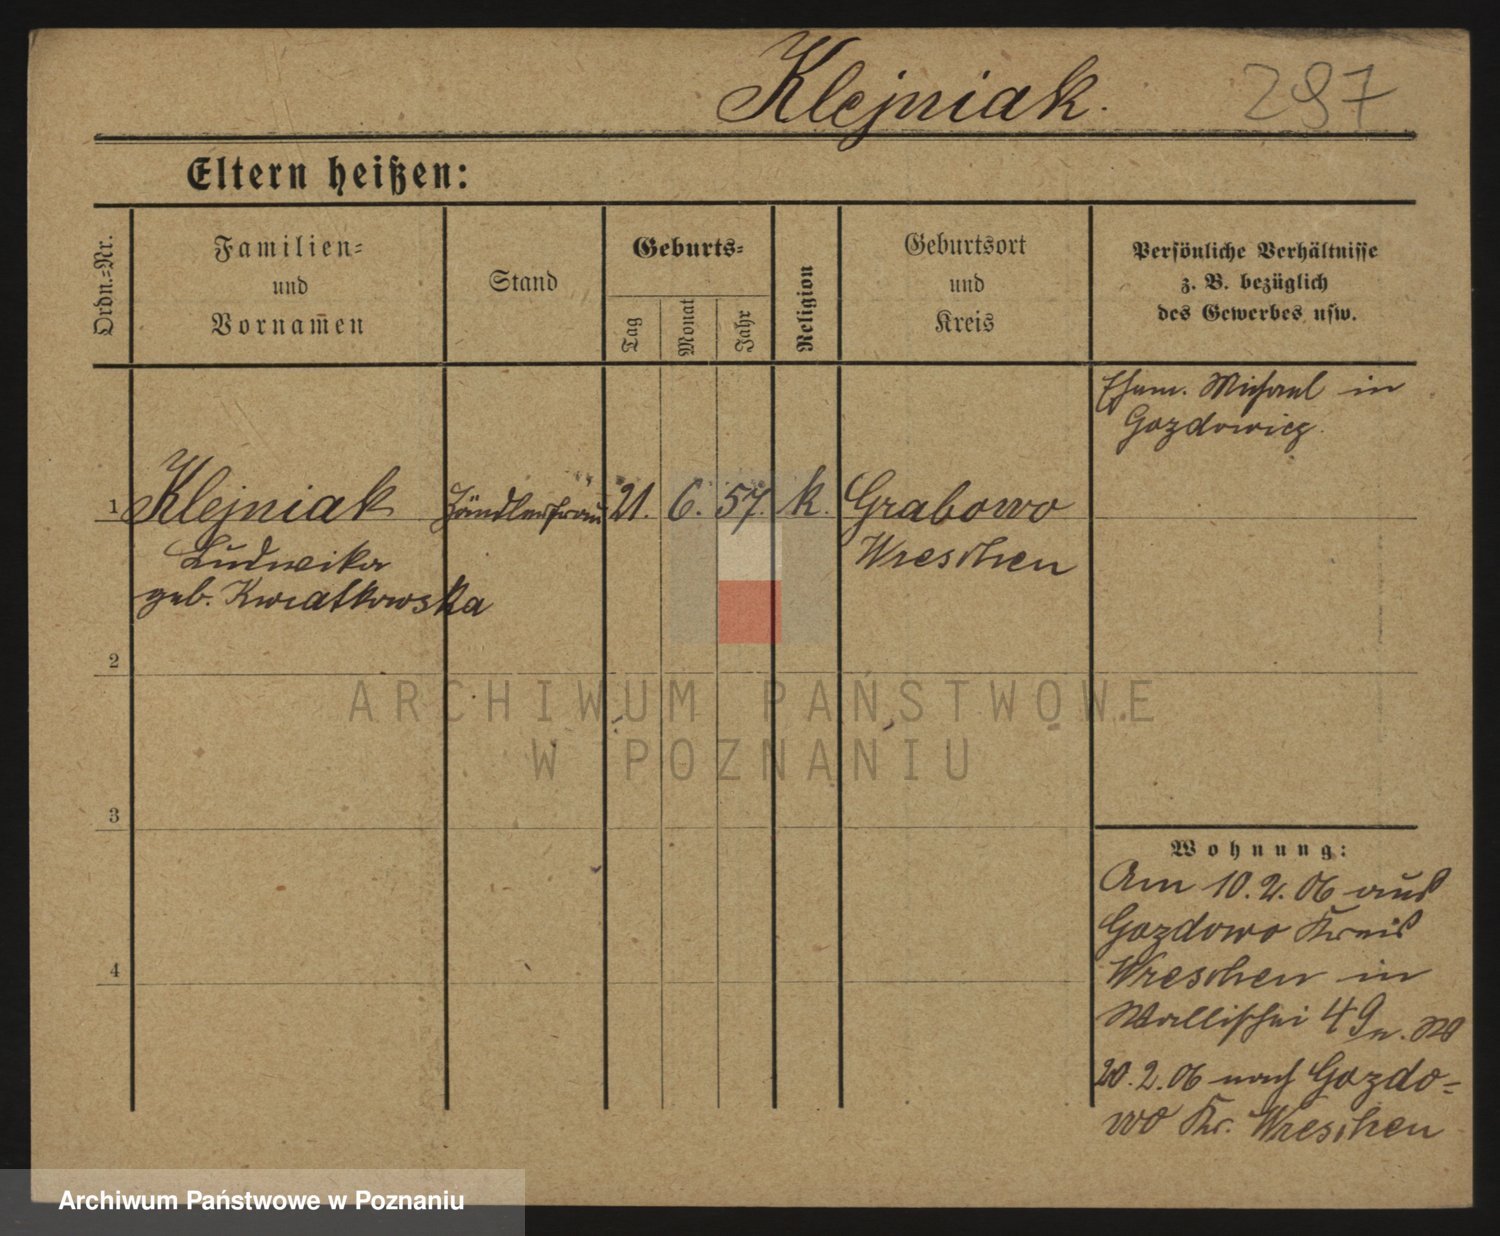 Klejniak. 297
Eltern heißen:
Ordn.-Nr.
Familien-
und
Vornamen
Stand
Geburts-
Tag
Monat
Jahr
Religion
Geburtsort
und
Kreis
Persönliche Verhältnisse
z. B. bezüglich
des Gewerbes usw.
Ehem. Michael in
Gozdowicz.
1 Klejniak Händlerfrau 21. 6. 57. k. Grabowo
Ludwika Wreschen
geb. Kwiatkowska
2
3
4
Wohnung:
Am 10.2.06 aus
Gozdowo Kreis
Wreschen in
Wallischei 49
20.2.06 nach Gozdo-
wo Kr. Wreschen
ARCHIWUM PAŃSTWOWE
W POZNANIU
Archiwum Państwowe w Poznaniu